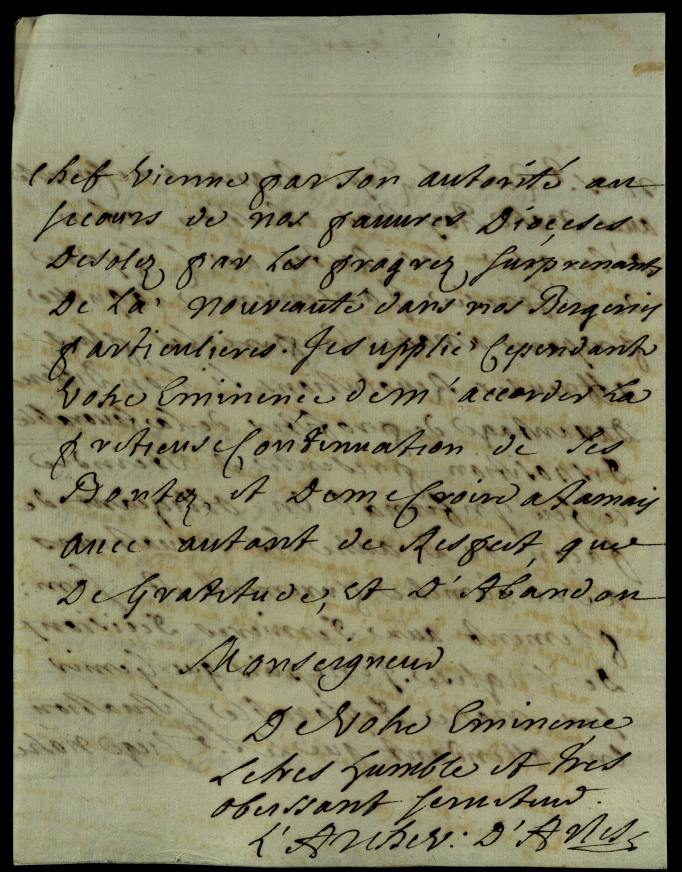 Chef Vienne par son autorité au
secours de nos pauvres Dioceses
Desolez par les progrez surprenants
De La nouveauté dans nos Bergeries
particulieres. Je supplie Cependant
Votre Eminence de m'accorder La
pretieuse Continuation de Ses
Bontez, et De me Croire a Jamais
avec autant de Respect, que
De Gratitude, et D'Abandon
Monseigneur
De Votre Eminence
Le tres humble et tres
obeissant serviteur.
L'Archev: D'Arles